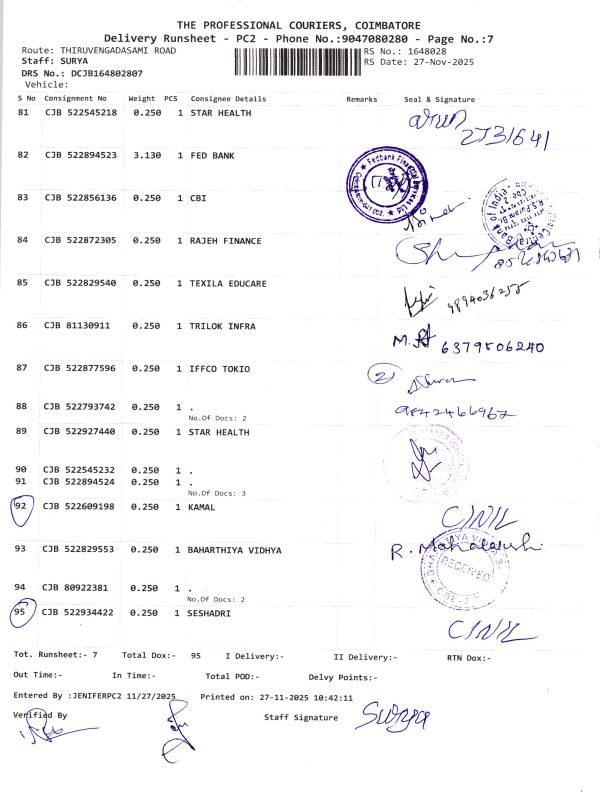 THE PROFESSIONAL COURIERS, COIMBATORE
Delivery Runsheet - PC2 - Phone No.:9047080280 - Page No.:7
Route: THIRUVENGADASAMI ROAD RS No.: 1648028
Staff: SURYA RS Date: 27-Nov-2025
DRS No.: DCJB164802807
Vehicle:
S No Consignment No Weight PCS Consignee Details Remarks Seal & Signature
81 CJB 522545218 0.250 1 STAR HEALTH
82 CJB 522894523 3.130 1 FED BANK
83 CJB 522856136 0.250 1 CBI
84 CJB 522872305 0.250 1 RAJEH FINANCE
85 CJB 522829540 0.250 1 TEXILA EDUCARE
9894036255
86 CJB 81130911 0.250 1 TRILOK INFRA
6379506240
87 CJB 522877596 0.250 1 IFFCO TOKIO
2
88 CJB 522793742 0.250 1 .
9842466967
No.Of Docs: 2
89 CJB 522927440 0.250 1 STAR HEALTH
90 CJB 522545232 0.250 1 .
91 CJB 522894524 0.250 1 .
No.Of Docs: 3
92 CJB 522609198 0.250 1 KAMAL
C/N/L
93 CJB 522829553 0.250 1 BAHARTHIYA VIDHYA
RECEIVED
94 CJB 80922381 0.250 1 .
No.Of Docs: 2
95 CJB 522934422 0.250 1 SESHADRI
C/N/L
Tot. Runsheet:- 7 Total Dox:- 95 I Delivery:- II Delivery:- RTN Dox:-
Out Time:- In Time:- Total POD:- Delvy Points:-
Entered By :JENIFERPC2 11/27/2025 Printed on: 27-11-2025 10:42:11
Verified By Staff Signature Surya